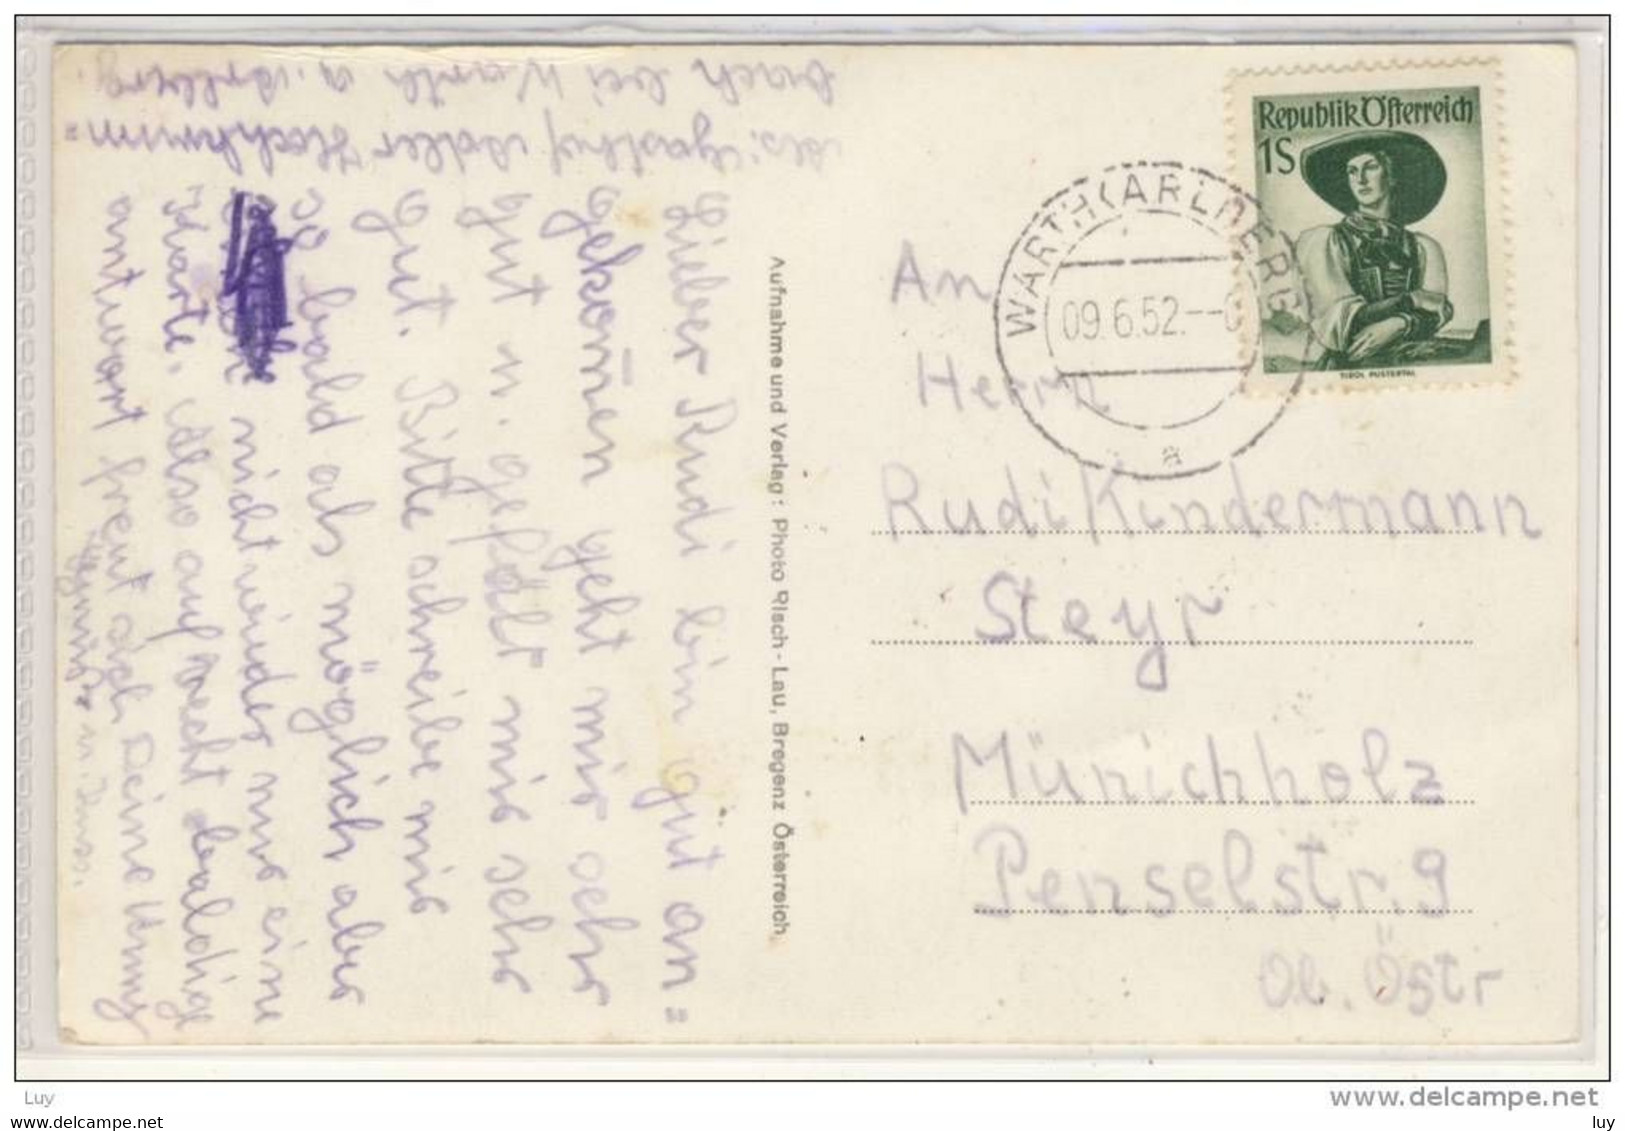 Lieber Rudi bin gut an=
gekom̄en geht mir sehr
gut u. gefällt mir sehr
gut. Bitte schreibe mir
so bald als möglich aber
nicht wieder nur eine
Karte. Also auf recht baldige
antwort freut sich Deine
u. Kuss.
Gasthof Adler Hochkrum=
bach bei Warth a. Arlberg.
Aufnahme und Verlag: Photo Risch-Lau, Bregenz Österreich
Republik Österreich
1S
TIROL PUSTERTAL
WARTH (ARLBERG
09.6.52.
a
An
Herrn
Rudi Kindermann
Steyr
Münichholz
Penselstr. 9
Ob. Östr
Luy
www.delcampe.net
luy